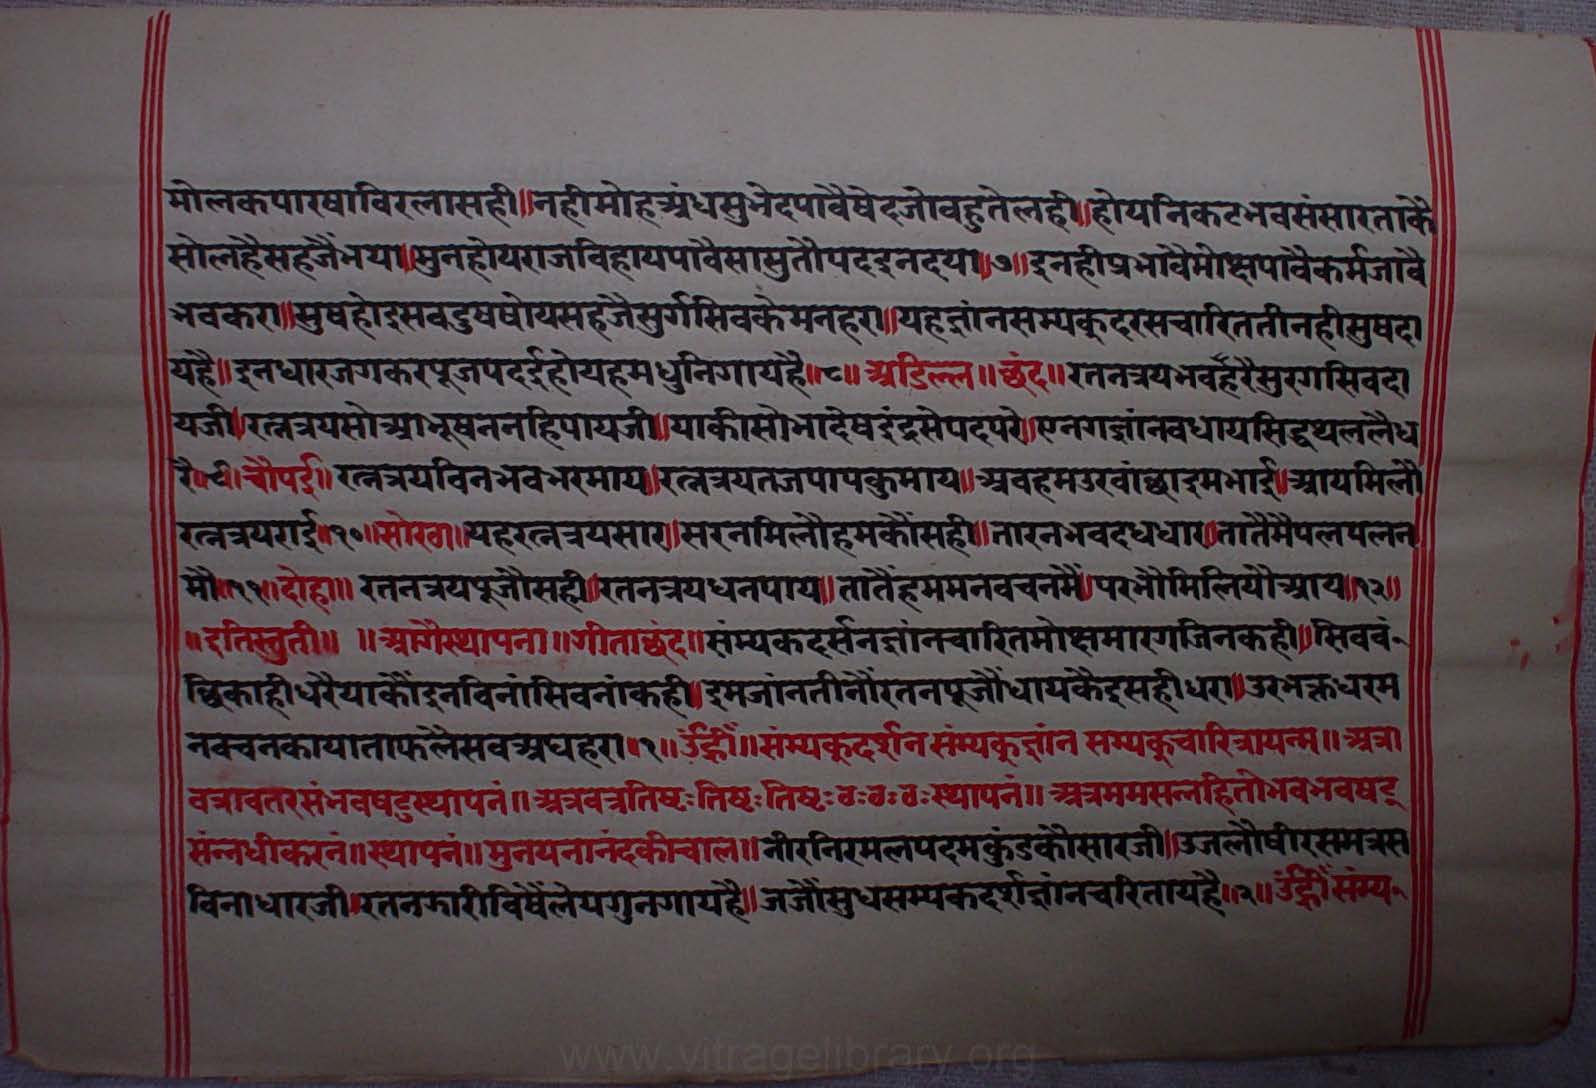 मोलकपारषाविरलासही॥नहीमोहअंधसुभेदपावैषेदजोवहुतेलही॥होयनिकटभवसंसारताकै
सोलहैसहजैंभया॥मुनहोयराजविहायपावैसासुतौपदइनदया॥७॥इनहीप्रभावैमोक्षपावैकर्मजावै
भवकरा॥सुषहोइसवदुषषोयसहजैसुर्गसिवकेमनहरा॥यहज्ञांनसम्यक्दरसचारिततीनहीसुषदा
यहै॥इनधारजगकरपूजपदईहोयहमधुनिगायहै॥८॥अडिल्ल॥छंद॥रतनत्रयभवहरैसुरगसिवदा
यजी॥रत्नत्रयसोआभूषननहिपायजी॥याकीसोभादेषइंद्रसेपदपरे॥एनगज्ञांनवधायसिद्धथललैध
रै॥९॥चौपई॥रत्नत्रयविनभवभरमाय॥रत्नत्रयतजपापकुमाय॥अवहमउरवांछाइमभाई॥आयमिलौ
रत्नत्रयराई॥१०॥सोरठा॥यहरत्नत्रयसार॥सरनमिलौहमकौंसही॥तारनभवदधधार॥तातैमैपलपलन
मौ॥११॥दोहा॥रतनत्रयपूजौसही॥रतनत्रयधनपाय॥तातैंहममनवचनमैं॥परभौमिलियौआय॥१२॥
॥इतिस्तुती॥ ॥आगैस्थापना॥गीताछंद॥संम्यकदर्सनज्ञांनचारितमोक्षमारगजिनकही॥सिववं
छिकाहीधरैयाकौंइनविनांसिवनांकही॥इमजांनतीनौंरतनपूजौंधायकैइसहीधरा॥उरभक्तधरम
नवचनकायाताफलैसवअघहरा॥१॥उंह्रीं॥संम्यक्दर्शनसंम्यक्ज्ञांनसम्यक्चारित्रायन्म॥अत्रा
वत्रावतरसंभवषडुस्थापनं॥अत्रवत्रतिष्टःतिष्टःतिष्टःठःठःठःस्थापनं॥अत्रममसन्नहितोभवभवषट्
संन्नधीकरनं॥स्थापनं॥मुनयनानंदकीचाल॥नीरनिरमलपदमकुंडकौसारजी॥उजलौषीरसमत्रस
विनाधारजी॥रतनझारीविषैंलेयगुनगायहै॥जजौंसुधसम्यकदर्शज्ञांनचरितायहै॥२॥उंह्रीं संम्य
www.vitragelibrary.org